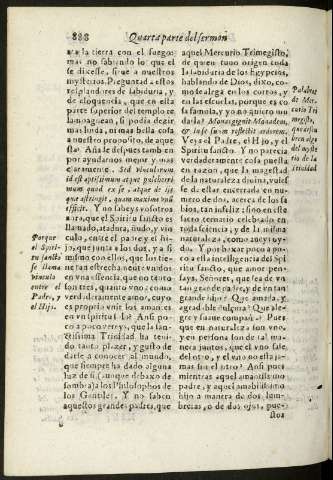 888 Quarta parte del sermon
ara la tierra con el fuego:
mas no sabiendo lo que el
se dixesse, si que a nuestros
mysterios. Preguntad a estos
resplandores de sabiduria, y
de eloquencia, que en esta
parte superior del templo se
imaginan, si podia dezir
mas linda, ni mas bella cosa
a nuestro proposito, de aque
sta. Aña le despues tambien
por ayudarnos mejor y mas
claramente. Sed vinculorum
id est aptissimum atque pulcherri-
mum quod ex se, atque de ijs
quæ astringit, quam maximè vnũ
efficit. Y no sabeys vosotros
aora, que el Spiritu sancto es
llamado, atadura, ñudo, y vin
culo, entre el padre y el hi-
jo, que junta a los dos, y a si
mismo con ellos, que los tie-
ne tan estrechamente vnidos
en vna essencia, que no tanto
los tres, quanto vno, como a
verdadero amor, cuyo
es proprio vnir los amantes
en vn spiritu solo. Ansi po-
co a poco vereys, que la san-
ctissima Trinidad ha teni-
do tanto plazer, y gusto de
darse a conocer al mundo,
que siempre ha dado alguna
luz de si (aunque debaxo de
sombra) a los Philosophos de
los Gentiles. Y no saben
aquestos grandes padres, que
Porque
el Spiri-
tu sancto
se llama
vinculo
entre el
Padre, y
el Hijo.
aquel Mercurio Trimegisto,
de quien tuuo origen toda
la sabiduria de los Egypcios,
hablando de Dios, dixo, co-
mo se alega en los coros, y
en las escuelas, porque es co
sa sancta, y no ay quien no
darla? Monas gignit Monadem,
& in se suum reflectit ardorem.
Veys el Padre, el Hijo, y el
Spiritu sancto? Y no parecia
verdaderamente cosa puesta
en razon, que la magestad
de la naturaleza diuina, vuies
se de ser encerrada en nu-
mero de tres, acerca de los sa
bios, no tan insigne; sino en este
sacro ternario celebrado en
toda sciencia, y de la misma
naturaleza, como aueys vi-
sto? Y como os parece que
esto a esta intelligencia del Spi
ritu sancto, que amor pen-
saya, Señores, que sea de vn
tan grande padre, y de vn tan
grande hijo? Que amada, y
agradable pulchra? Que ale-
gre y suaue compañia? Pues
que en naturaleza son vno,
y en persona son de tal ma
nera juntos, que el vno sale
del otro, y el vno no esta ja-
mas sin el otro? Ansi pues
mientras aquel amantissimo
padre, y aquel amabilissimo
hijo a manera de dos lum-
breras, o de dos ojos, pue-
stos
Palabras
de Mer-
curio Tri
megisto,
que assen
breu algo
del myste
rio de la
trinidad